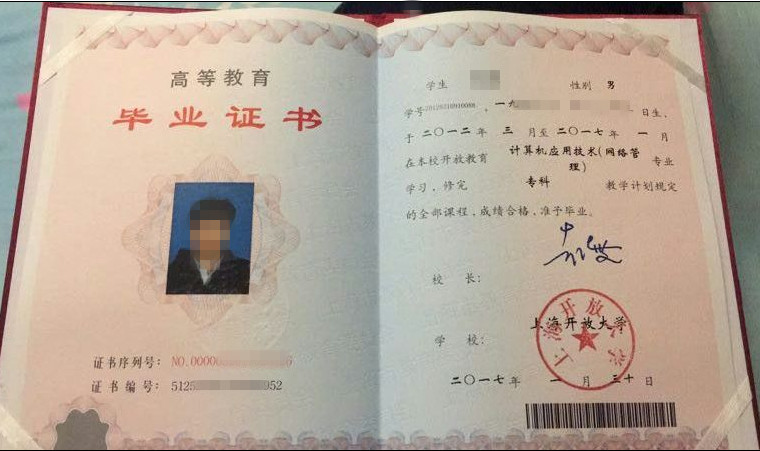 高等教育
毕业证书
证书序列号: NO.00000
证书编号: 5125 952
学生 性别 男
学号 , 一九 日生、
于 二〇一二年 三 月至 二〇一七年 一 月
在本校开放教育 计算机应用技术(网络管理) 专业
学习, 修完 专科 教学计划规定
的全部课程, 成绩合格, 准予毕业。
校 长:
上海开放大学
学 校:
上海开放大学
二〇一七 年 一 月 三十 日